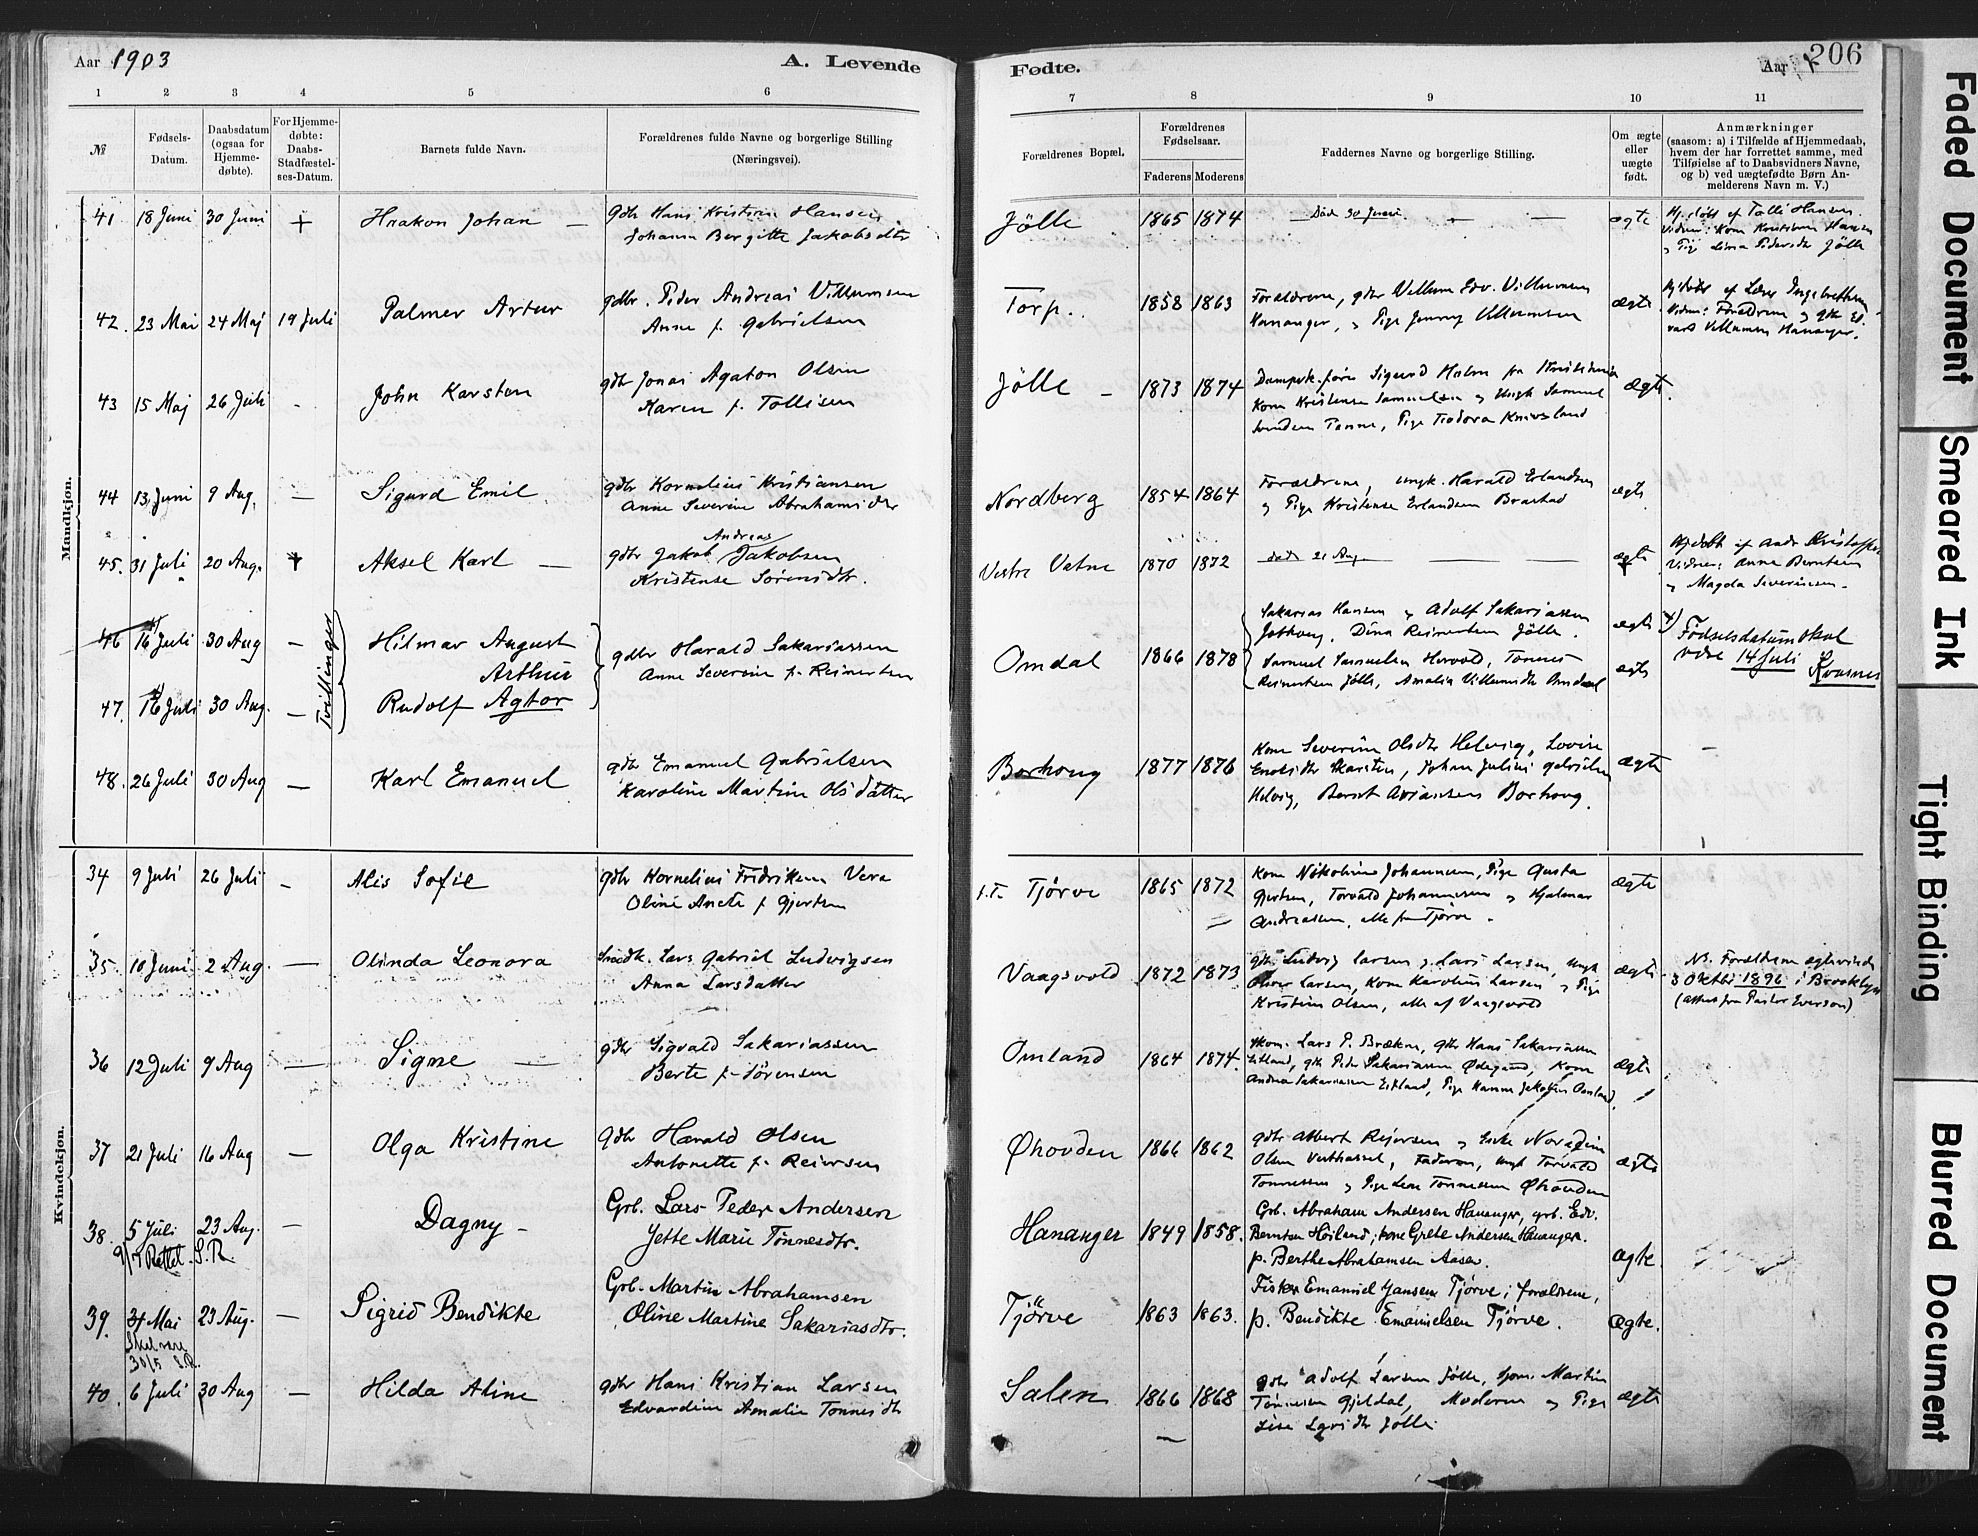 Aar 1903
A. Levende
Fødte.
Aar
206
1 2 3 4 5 6 7 8 9 10 11
№
Fødsels-
Datum.
Daabsdatum
(ogsaa for
Hjemme-
døbte).
For Hjemme-
døbte:
Daabs-
Stadfæstel-
ses-Datum.
Barnets fulde Navn.
Forældrenes fulde Navne og borgerlige Stilling
(Næringsvei).
Forældrenes Bopæl.
Forældrenes
Fødselsaar.
Faderens Moderens
Faddernes Navne og borgerlige Stilling.
Om ægte
eller
uægte
født.
Anmærkninger
(saasom: a) i Tilfælde af Hjemmedaab,
hvem der har forrettet samme, med
Tilføielse af to Daabsvidners Navne,
og b) ved uægtefødte Børn An-
melderens Navn m. V.)
Mandkjøn.
41. 18 Juni 30 Juni + Haakon Johan —
gdbr Hans Kristian Hansen
Johanna Bergitte Jakobsdtr
Jölle 1865 1874 — Död 30 Juni — — ægte
Hj.döbt af Tolli Hansen
Vidner: Kone Kristine Hansen
og Pige Lina Pedersdtr Jölle
42. 23 Mai 24 Maj 19 Juli Palmer Artur
gdbr. Peder Andreas Villumsen
Anne f. Gabrielsen
Torp. 1858 1863
Forældrene, gdbr Villum Edv. Villumsen
Hananger, og Pige Jenny Villumsen
ægte
Hj.döbt af Lærer Ingebrethsen
Vidner: Forældrene og gdbr Ed-
vard Villumsen Hananger.
43 15 Maj 26 Juli - John Karsten
gdbr Jonas Agaton Olsen
Karen f. Tollisen
Jölle - 1873 1874
Dampsk.förer Sigurd Holm fra Kristiania
Kone Kristense Samuelsen og Ungk Samuel
Svendsen Tanne, Pige Teodora Knivsland
ægte.
44 13 Juni 9 Aug. — Sigurd Emil
gdbr Kornelius Kristiansen
Anne Severine Abrahamsdtr
Nordberg 1854 1864
Forældrene, ungk. Harald Erlandsen
og Pige Kristense Erlandsen Brastad
ægte
45. 31 Juli 20 Aug. + Aksel Karl —
Andreas
gdbr Jakob Jakobsen
Kristense Sörensdtr.
Vestre Vatne 1870 1872 — död 21 Aug — — ægte
Hjdöbt af Kristoffersen
Vidner: Anna Berntsen
og Magda Severinsen.
Tvillinger
46 16 Juli 30 Aug — Hilmar August
Arthur
47. 16 Juli 30 Aug. — Rudolf Agtor
gdbr Harald Sakariassen
Anne Severine f. Reinertsen
Omdal 1866 1878
Sakarias Hansen og Adolf Sakariassen
Dina Reinertsen Jölle.
Samuel Samuelsen Hervold, Tönnes
Reinertsen Jölle, Amalia Villumsdtr Omdal
ægte
ægte
x) Fødselsdatum skal
være 14 Juli
Kvasnes
48. 26 Juli 30 Aug — Karl Emanuel
gdbr Emanuel Gabrielsen
Karoline Martine Olsdatter
Borhoug 1877 1876
Kone Severine Olsdtr Helvig, Lovise
Enoksdtr Skarsten, Johan Julius Gabrielsen
Helvig, Bernt Borhoug.
ægte
Kvindekjøn.
34 9 Juli 26 Juli - Alis Sofie
gdbr Kornelius Fridriksen Vere
Oline f Gjertsen
Tjörve 1865 1872
Kone Nikoline Johannesen, Pige Gusta
Gjertsen, Torvald Johannesen og Hjalmar
Andreassen, alle fra Tjörve.
ægte
35. 10 Juni 2 Aug. — Olinda Leonora
Lars Gabriel Ludvigsen
Anna Larsdatter
Vaagsvold 1872 1873
gdbr Ludvig Larsen og Lars Larsen, ungk
Oliver Larsen, Kone Karoline Larsen og Pige
Kristine Olsen, alle af Vaagsvold
ægte
NB. Forældrene ægteviede
3 Oktbr 1896 i Brooklyn
(Attest fra Pastor Everson)
36 12 Juli 9 Aug — Signe —
gdbr Sigvald Sakariassen
Berte f. Sörensen
Omland 1864 1874.
Lars P. Brækne, gdbr Hans Sakariassen
Eitland, gdbr Peder Sakariassen Ødegaard, Kone
Andrea Sakariassen Eitland, Pige Hanna Jakobsen Omland.
ægte
37 21 Juli 16 Aug — Olga Kristine
Gdbr Harald Olsen
Antonette f. Reiersen
Øhovden 1866 1862
gdbr Albert Reiersen og Enke Noradine
Olsen Vesthassel, Faderen, ungk Torvald
Tönnessen og Pige Lise Tönnessen Øhovden
ægte
38. 5 Juli 23 Aug. — Dagny -
9/7 Rettet. S.R.
Grb. Lars Peder Andersen
Jette Marie Tönnesdtr.
Hananger 1849 1858.
Grb. Abraham Andersen Hananger, grb. Edv.
Berntsen Höiland, kone Grete Andersen Hananger.
p. Berthe Abrahamsen Aasen.
ægte.
39. 31 Mai 23 Aug. — Sigrid Bendikte
Skal være
30/5 S.R.
Grb. Martin Abrahamsen
Oline Martine Sakariasdtr.
Tjörve 1863 1863.
Fisker Emanuel Jansen Tjörve; forældrene,
p. Bendikte Emanuelsen Tjörve.
ægte.
40. 6 Juli 30 Aug — Hilda Aline
gdbr Hans Kristian Larsen
Edvardine Amalie Tönnesdtr
Salen 1866 1868
gdbr Adolf Larsen Jölle, Martin
Tönnesen Gjeldal, Moderen og Pige
Lise Jölle.
ægte
Faded Document
Smeared Ink
Tight Binding
Blurred Document